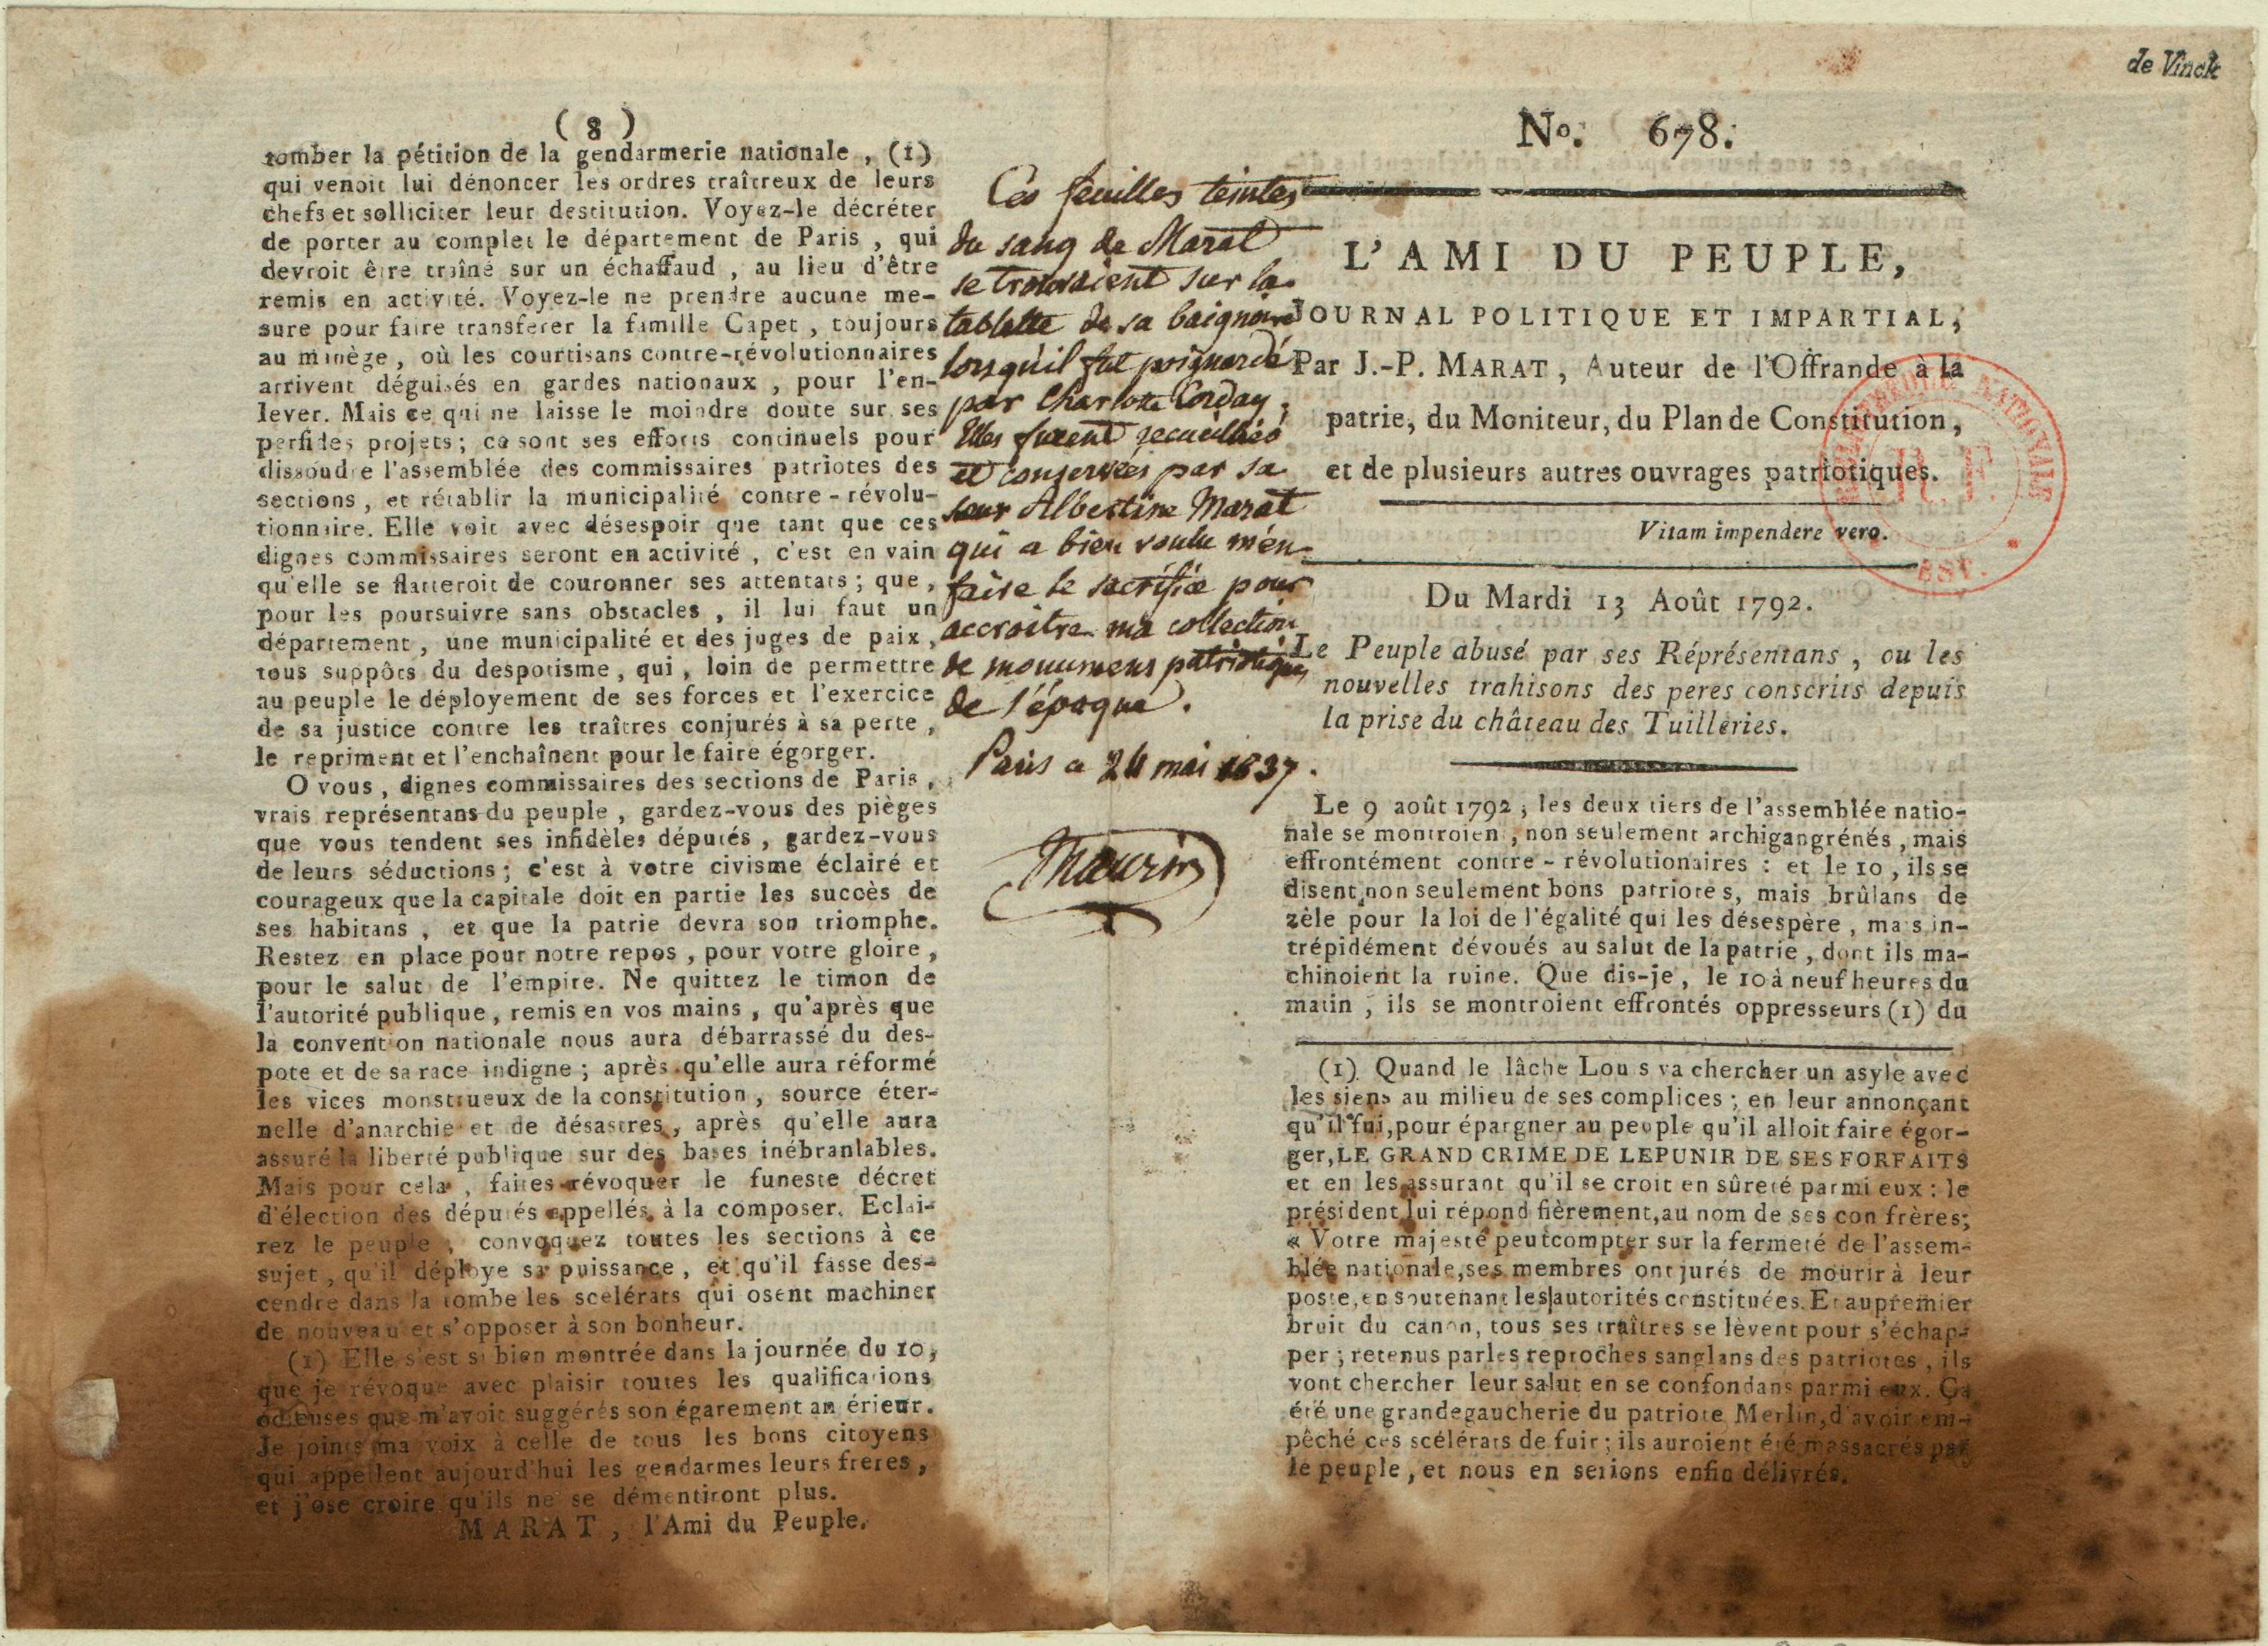 de Vinck
( 8 )
tomber la pétition de la gendarmerie nationale , (1)
qui venoit lui dénoncer les ordres traîtreux de leurs
chefs et solliciter leur destitution. Voyez-le décréter
de porter au complet le département de Paris , qui
devroit être traîné sur un échaffaud , au lieu d'être
remis en activité. Voyez-le ne prendre aucune me-
sure pour faire transférer la famille Capet , toujours
au manège, où les courtisans contre-révolutionnaires
arrivent déguisés en gardes nationaux , pour l'en-
lever. Mais ce qui ne laisse le moindre doute sur ses
perfides projets; ce sont ses efforts continuels pour
dissoudre l'assemblée des commissaires patriotes des
sections, et rétablir la municipalité contre-révolu-
tionnaire. Elle voit avec désespoir que tant que ces
dignes commissaires seront en activité , c'est en vain
qu'elle se flatteroit de couronner ses attentats; que,
pour les poursuivre sans obstacles , il lui faut un
département, une municipalité et des juges de paix,
tous suppôts du despotisme, qui, loin de permettre
au peuple le déployement de ses forces et l'exercice
de sa justice contre les traîtres conjurés à sa perte,
le repriment et l'enchaînent pour le faire égorger.
O vous, dignes commissaires des sections de Paris,
vrais représentans du peuple, gardez-vous des pièges
que vous tendent ses infidèles députés, gardez-vous
de leurs séductions; c'est à votre civisme éclairé et
courageux que la capitale doit en partie les succès de
ses habitans , et que la patrie devra son triomphe.
Restez en place pour notre repos , pour votre gloire,
pour le salut de l'empire. Ne quittez le timon de
l'autorité publique, remis en vos mains, qu'après que
la convention nationale nous aura débarrassé du des-
pote et de sa race indigne; après qu'elle aura réformé
les vices monstrueux de la constitution, source éter-
nelle d'anarchie et de désastres, après qu'elle aura
assuré la liberté publique sur des bases inébranlables.
Mais pour cela, faites révoquer le funeste décret
d'élection des députés appellés à la composer. Eclai-
rez le peuple, convoquez toutes les sections à ce
sujet, qu'il déploye sa puissance, et qu'il fasse des-
cendre dans la tombe les scelérats qui osent machiner
de nouveau et s'opposer à son bonheur.
(1) Elle s'est si bien montrée dans la journée du 10,
que je révoque avec plaisir toutes les qualifications
odieuses que m'avoit suggérés son égarement antérieur.
Je joints ma voix à celle de tous les bons citoyens
qui appellent aujourd'hui les gendarmes leurs freres,
et j'ose croire qu'ils ne se démentiront plus.
MARAT, l'Ami du Peuple.
Ces feuilles teintes
du sang de Marat
se trouvaient sur la
tablette de sa baignoire
lorsqu'il fut poignardé
par Charlotte Corday;
Elles furent recueillies
et conservées par sa
sœur Albertine Marat
qui a bien voulu m'en
faire le sacrifice pour
accroitre ma collection
de monumens patriotiques
de l'époque.
Paris a 24 mai 1837.
Maurin
No. 678.
L'AMI DU PEUPLE,
JOURNAL POLITIQUE ET IMPARTIAL,
Par J.-P. MARAT, Auteur de l'Offrande à la
patrie, du Moniteur, du Plan de Constitution,
et de plusieurs autres ouvrages patriotiques.
BIBLIOTHÈQUE NATIONALE
R.F.
EST.
Vitam impendere vero.
Du Mardi 13 Août 1792.
Le Peuple abusé par ses Réprésentans, ou les
nouvelles trahisons des peres conscrits depuis
la prise du château des Tuilleries.
Le 9 août 1792, les deux tiers de l'assemblée natio-
nale se montroien, non seulement archigangrénés, mais
effrontément contre-révolutionaires : et le 10, ils se
disent non seulement bons patriotes, mais brûlans de
zèle pour la loi de l'égalité qui les désespère, mais in-
trépidément dévoués au salut de la patrie, dont ils ma-
chinoient la ruine. Que dis-je, le 10 à neuf heures du
matin, ils se montroient effrontés oppresseurs (1) du
(1) Quand le lâche Lou s va chercher un asyle avec
les siens au milieu de ses complices; en leur annonçant
qu'il fui, pour épargner au peuple qu'il alloit faire égor-
ger, LE GRAND CRIME DE LE PUNIR DE SES FORFAITS
et en les assurant qu'il se croit en sûreté parmi eux : le
président lui répond fièrement, au nom de ses con frères;
« Votre majesté peut compter sur la fermeté de l'assem-
blée nationale, ses membres ont jurés de mourir à leur
poste, en soutenant les autorités constituées. Et au premier
bruit du canon, tous ses traîtres se lèvent pour s'échap-
per; retenus par les reproches sanglans des patriotes, ils
vont chercher leur salut en se confondans parmi eux. Ça
été une grande gaucherie du patriote Merlin, d'avoir em-
pêché ces scélérats de fuir; ils auroient été massacrés par
le peuple, et nous en serions enfin délivrés.